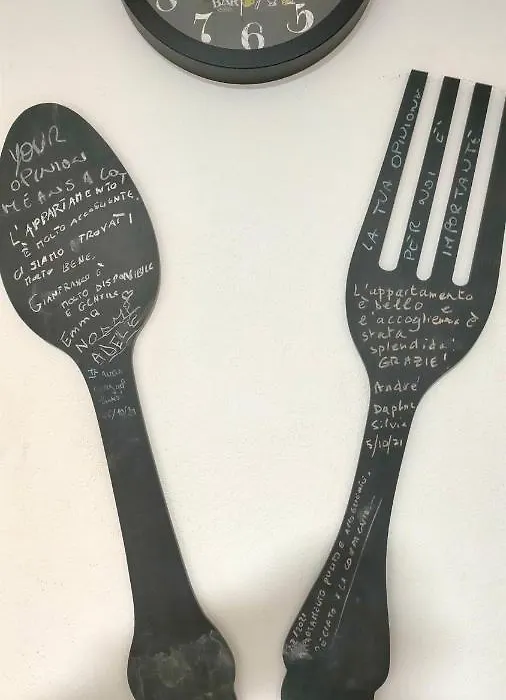 BAR
7
6
5
YOUR
OPINION
MEANS A LOT
L'APPARTAMENTO
È MOLTO ACCOGLIENTE.
CI SIAMO TROVATI
MOLTO BENE.
GIANFRANCO È
MOLTO DISPONIBILE
E GENTILE
Emma
NOEMI
ADELE
It was
LA TUA OPINIONE
PER NOI È
IMPORTANTE
L'appartamento
è bello e
l'accoglienza è
stata
splendida!
GRAZIE!
André
Daphne
Silvia
5/10/21
APPARTAMENTO PULITO E ACCOGLIENTE.